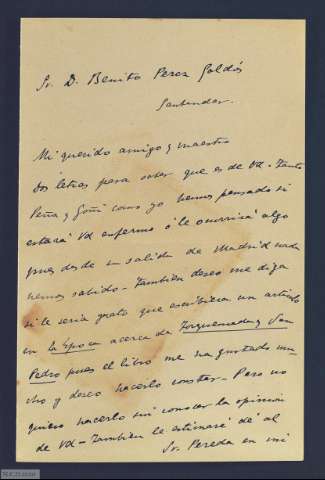 Sr. D. Benito Perez Galdós
Santander.
Mi querido amigo y maestro
Dos letras para saber que es de Vd - Tanto
Peña y Goñi como yo hemos pensado si
estará Vd enfermo ó le ocurrirá algo
pues desde su salida de Madrid nada
hemos sabido - Tambien deseo me diga
si le seria grato que escribiera un articulo
en la Epoca acerca de Torquemada y San
Pedro pues el libro me ha gustado mu-
cho y deseo hacerlo constar - Pero no
quiero hacerlo sin conocer la opinión
de Vd - Tambien le estimaré dé al
Sr. Pereda en mi